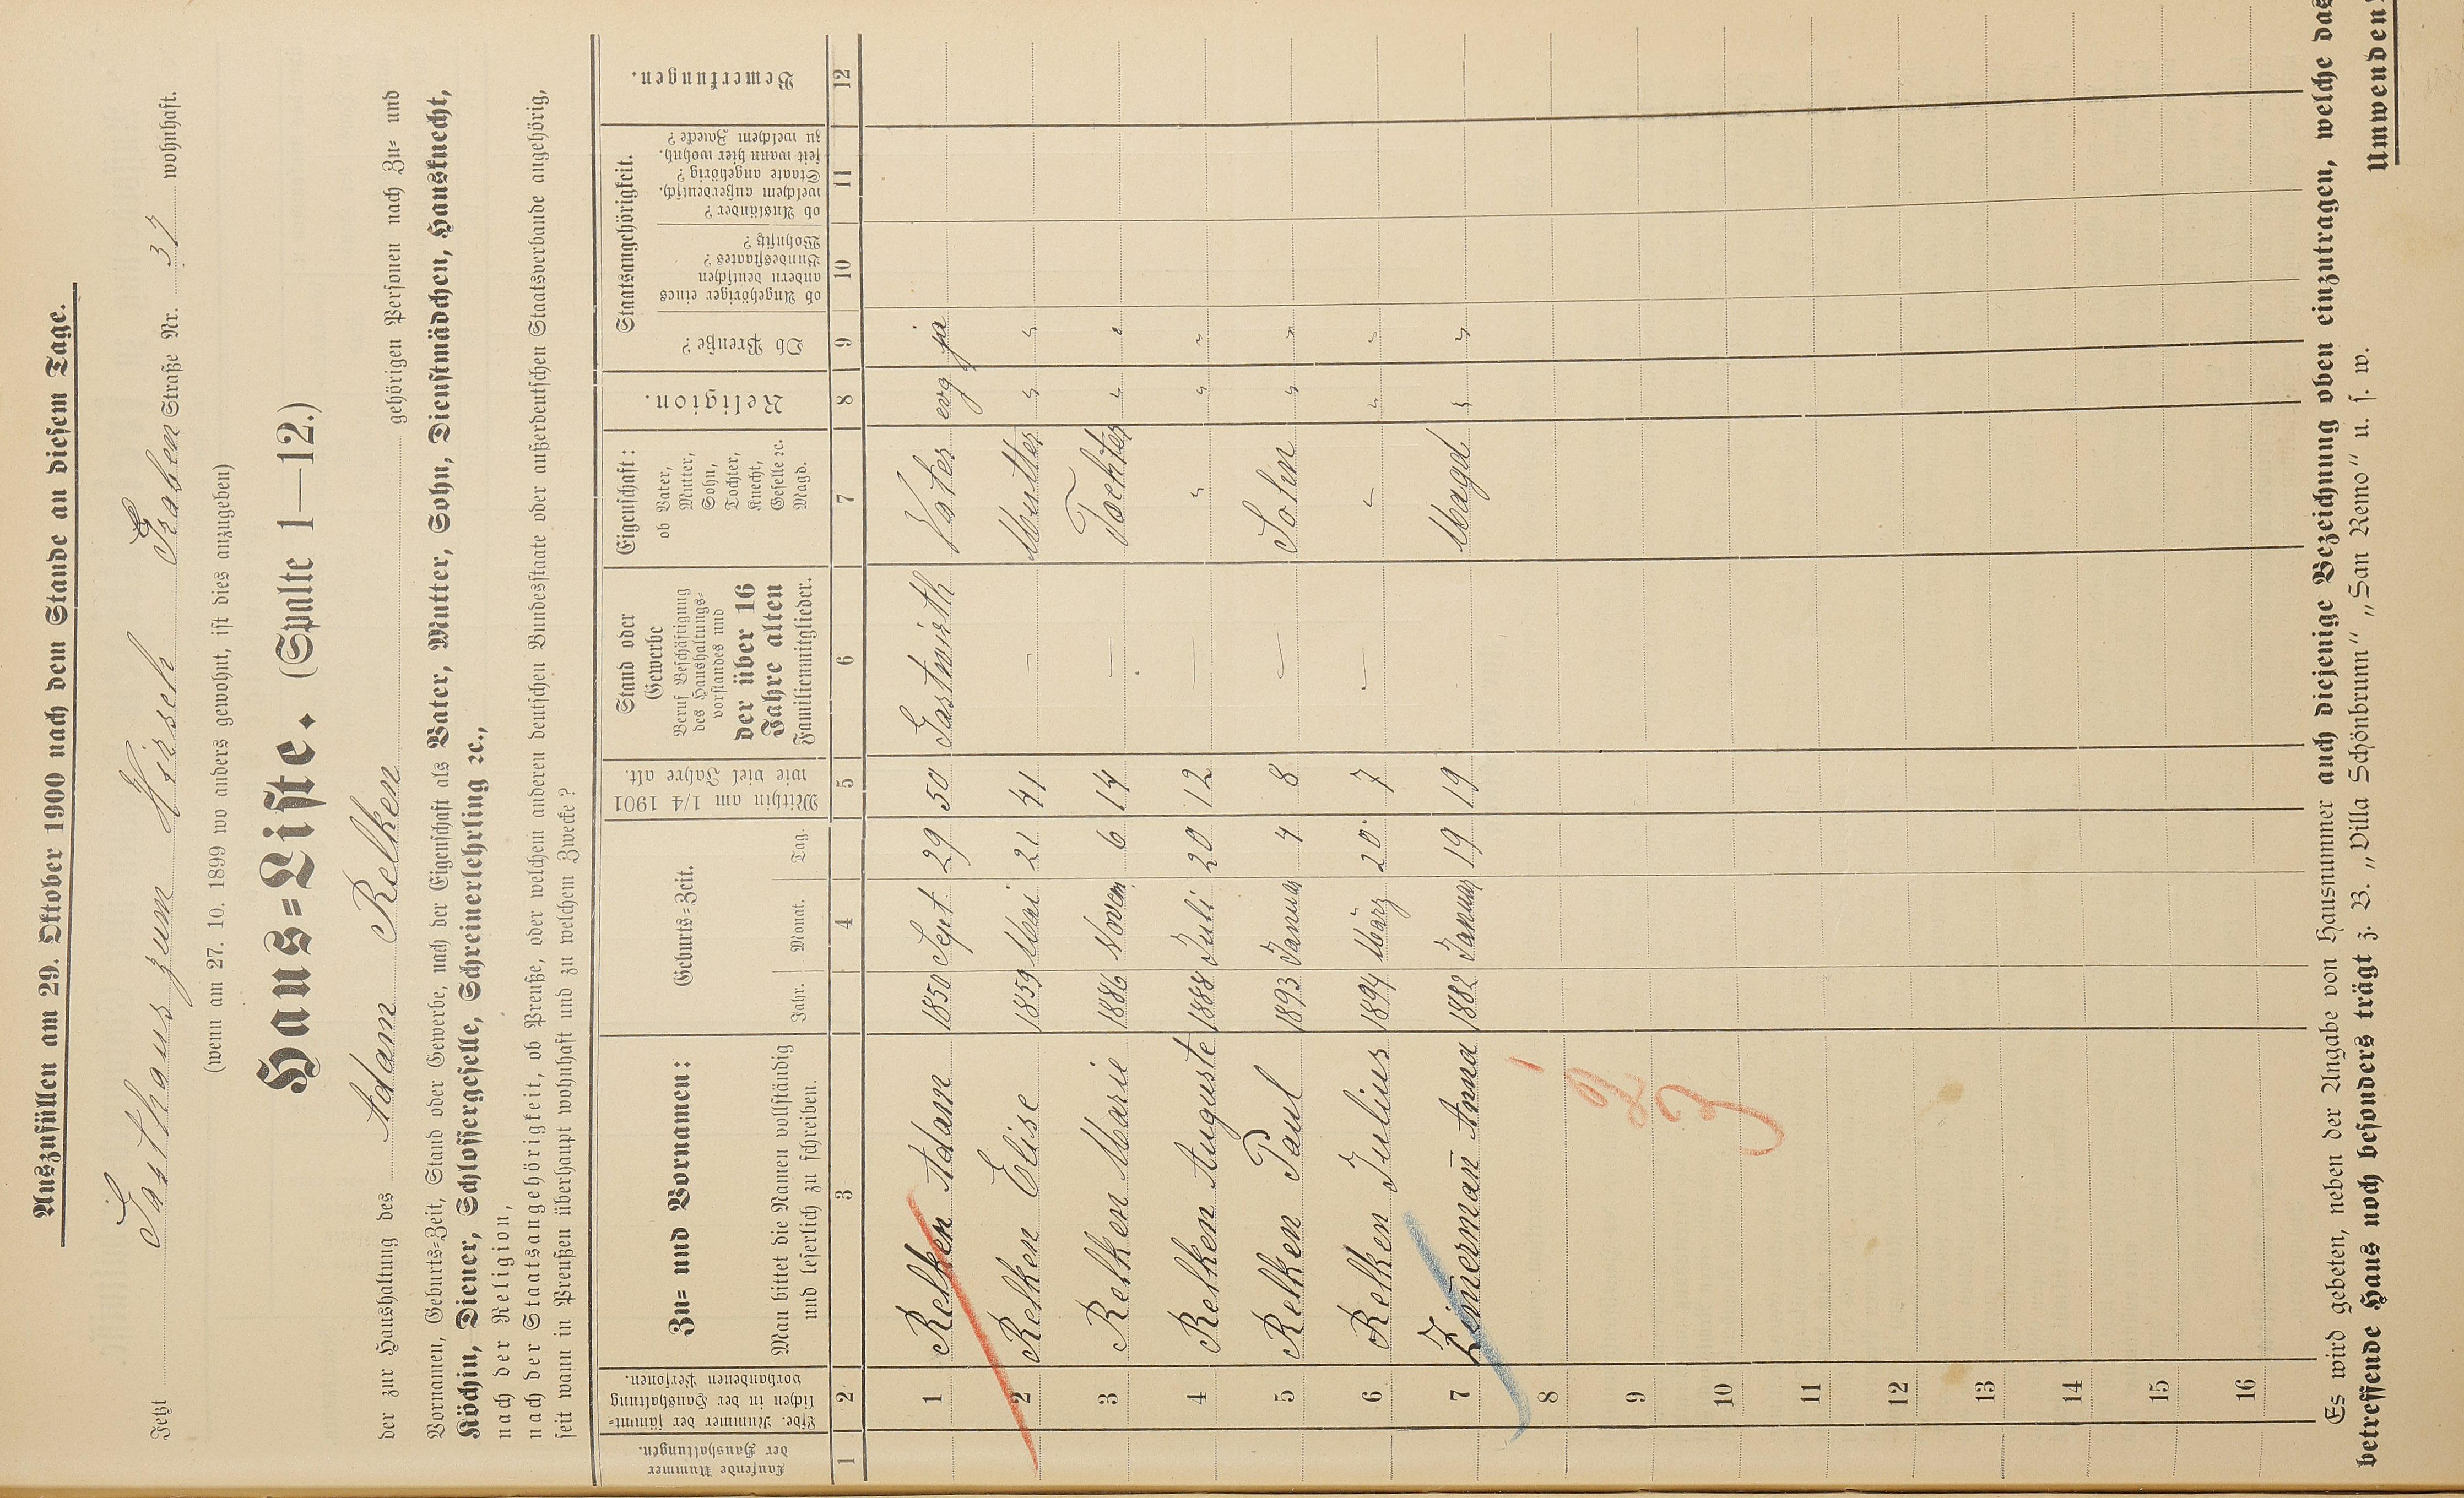 Auszufüllen am 29. Oktober 1900 nach dem Stande an diesem Tage.
Jetzt Gasthaus zum Hirsch Graben Straße Nr. 37 wohnhaft.
(wenn am 27. 10. 1899 wo anders gewohnt, ist dies anzugeben)
Haus=Liste. (Spalte 1—12.)
der zur Haushaltung des Adam Relken gehörigen Personen nach Zu= und
Vornamen, Geburts=Zeit, Stand oder Gewerbe, nach der Eigenschaft als Vater, Mutter, Sohn, Dienstmädchen, Hausknecht,
Köchin, Diener, Schlossergeselle, Schreinerlehrling ꝛc.,
nach der Religion,
nach der Staatsangehörigkeit, ob Preuße, oder welchem anderen deutschen Bundesstaate oder außerdeutschen Staatsverbande angehörig,
seit wann in Preußen überhaupt wohnhaft und zu welchem Zwecke?
Laufende Nummer der Haushaltungen.
Lfde. Nummer der sämmt=lichen in der Haushaltung vorhandenen Personen.
Zu= und Vornamen:
Man bittet die Namen vollständig und leserlich zu schreiben.
Geburts=Zeit.
Jahr. Monat. Tag.
Mithin am 1/4 1901 wie viel Jahre alt.
Stand oder Gewerbe
Beruf Beschäftigung des Haushaltungs=vorstandes und der über 16 Jahre alten Familienmitglieder.
Eigenschaft:
ob Vater, Mutter, Sohn, Tochter, Knecht, Geselle ꝛc. Magd.
Religion.
Staatsangehörigkeit.
Ob Preuße?
ob Angehöriger eines andern deutschen Bundesstaates? Wohnsitz?
ob Ausländer? welchem außerdeutsch. Staate angehörig? seit wann hier wohnh. zu welchem Zwecke?
Bemerkungen.
1 2 3 4 5 6 7 8 9 10 11 12
1 Relken Adam 1850 Sept 29 50 Gastwirth Vater evg ja
2 Relken Elise 1859 Mai 21 41 — Mutter " "
3 Relken Marie 1886 Novem 6 14 — Tochter " "
4 Relken Auguste 1888 Juli 20 12 — " " "
5 Relken Paul 1893 Januar 4 8 — Sohn " "
6 Relken Julius 1894 März 20 7 — " " "
7 Zim̄ermañ Anna 1882 Januar 19 19 Magd " "
8
9
10
11
12
13
14
15
16
Es wird gebeten, neben der Angabe von Hausnummer auch diejenige Bezeichnung oben einzutragen, welche das
betreffende Haus noch besonders trägt z. B. „Villa Schönbrunn" „San Remo" u. s. w.
Umwenden!